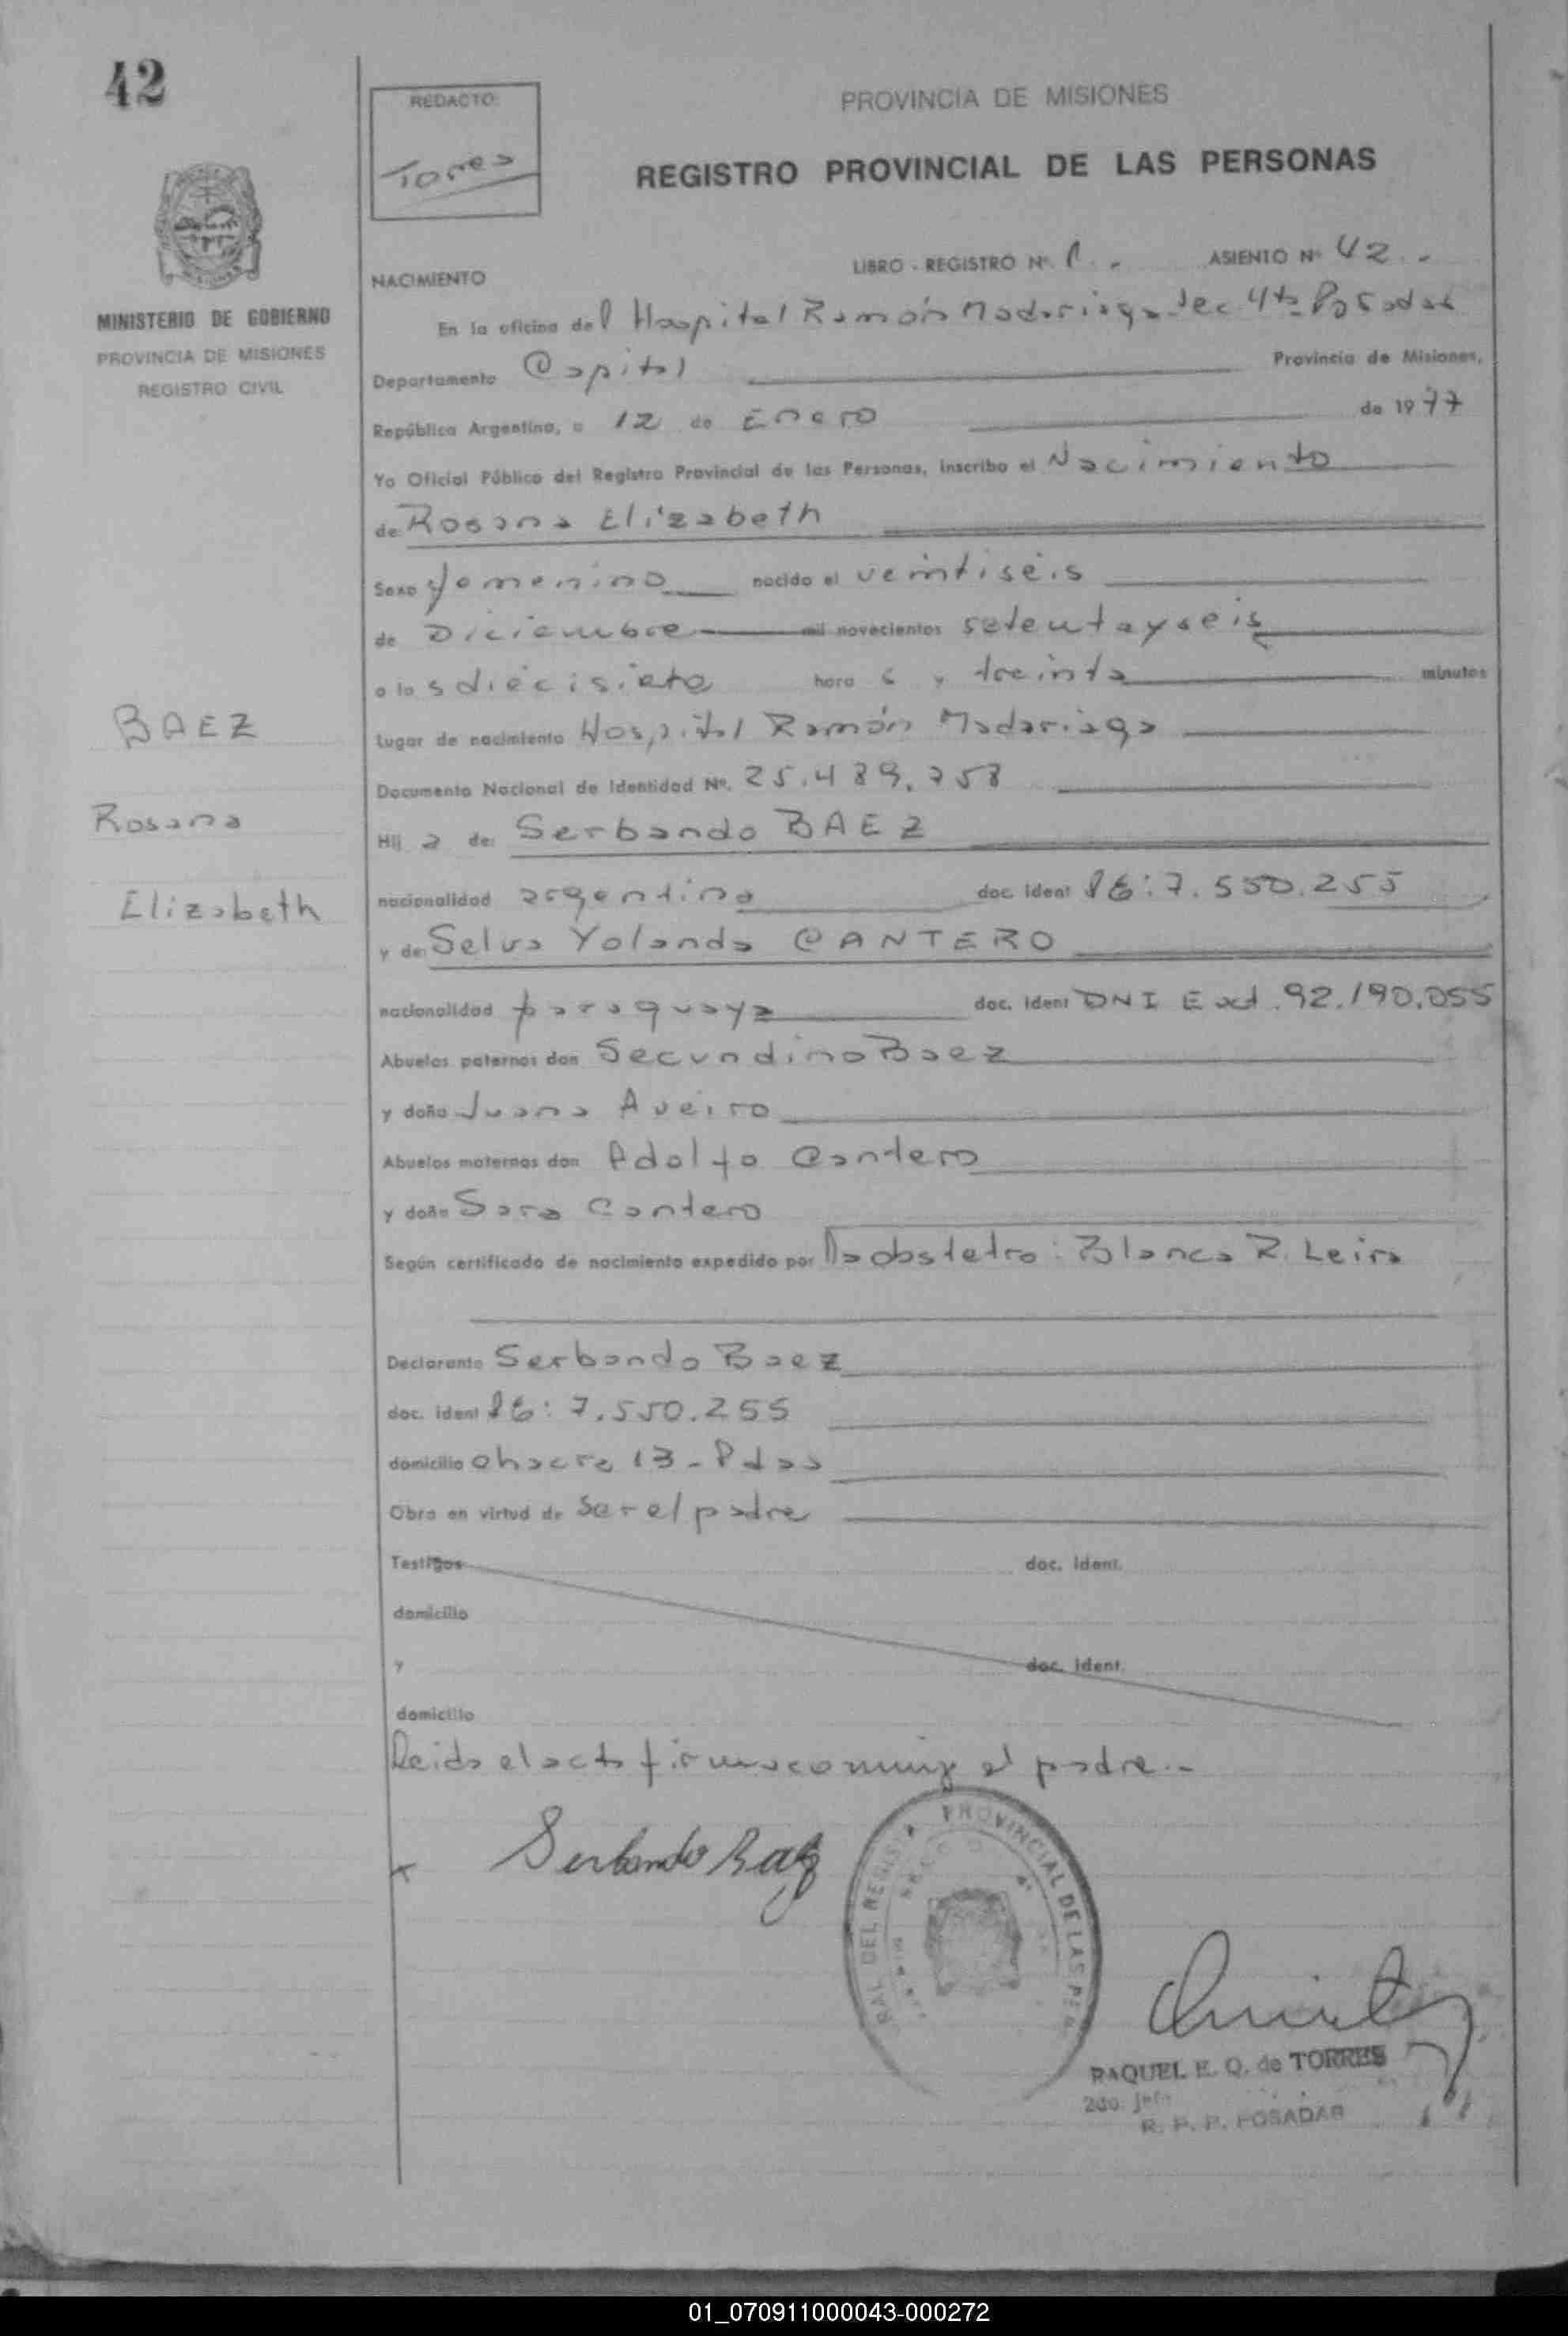 42
REDACTO:
Torres
PROVINCIA DE MISIONES
REGISTRO PROVINCIAL DE LAS PERSONAS
MINISTERIO DE GOBIERNO
PROVINCIA DE MISIONES
REGISTRO CIVIL
NACIMIENTO
LIBRO - REGISTRO Nº. 1 ASIENTO Nº 42
En la oficina del Hospital Ramón Madariaga Sec. 4ta Posadas
Departamento Capital Provincia de Misiones,
República Argentina, a 12 de Enero de 1977
Yo Oficial Público del Registro Provincial de las Personas, inscribo el Nacimiento
de: Rosana Elizabeth
Sexo femenino nacido el veintiseis
de Diciembre mil novecientos setenta y seis
a las diecisiete hora s y treinta minutos
BAEZ
Lugar de nacimiento Hospital Ramón Madariaga
Documento Nacional de Identidad Nº. 25.489.758
Rosana
Hij a de: Serbando BAEZ
Elizabeth
nacionalidad argentina doc. ident 7.550.255
y de: Selva Yolanda CANTERO
nacionalidad paraguaya doc. ident DNI Ext. 92.190.055
Abuelos paternos don Secundino Baez
y doña Juana Aveiro
Abuelos maternos don Adolfo Cantero
y doña Sara Cantero
Según certificado de nacimiento expedido por la obstetra: Blanca R. Leira
Declarante Serbando Baez
doc. ident 7.550.255
domicilio Chacra 13 - Pdas
Obra en virtud de ser el padre
Testigos doc. ident.
domicilio
y doc. ident.
domicilio
Leida el acta firma conmigo el padre.-
x Serbando Baez
RAL DEL REGIST PROVINCIAL DE LAS PER
RAQUEL E. Q. de TORRES
2do. Jefe
R. P. P. POSADAS
01_070911000043-000272